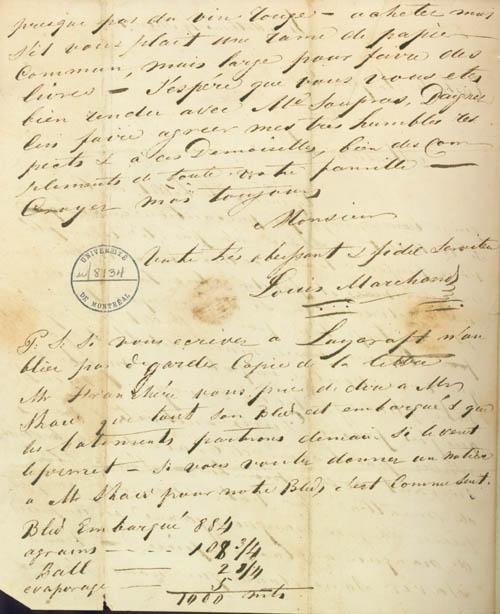 presque pas du vin rouge – achetez moi
s'il vous plait une rame de papier
Commun, mais large pour faire des
livres – J'espère que vous vous etes
bien rendu avec Mlle Soupras, Daignez
lui faire agréer mes très humbles res
pects & à ces Demoiselles, bien des Com
plements de toute votre famille –
Croyez moi toujours
Monsieur
Votre très obeissant & fidel Serviteur
Louis Marchand
UNIVERSITÉ
u/8134
DE MONTRÉAL
P. S. Si vous ecrivez a n'ou
bliez pas de garder Copie de la lettre
Mr vous prie de dire a Mr
que tout son Bled est embarqué & que
les batiments partirons demain si le vent
le permet – si vous voulez donner un notice
a Mr pour notre Bled, c'est Comme suit.
Bled Embarqué 884
agrains 108 3/4
Ball 2 1/4
evaporage 5
1000 mts